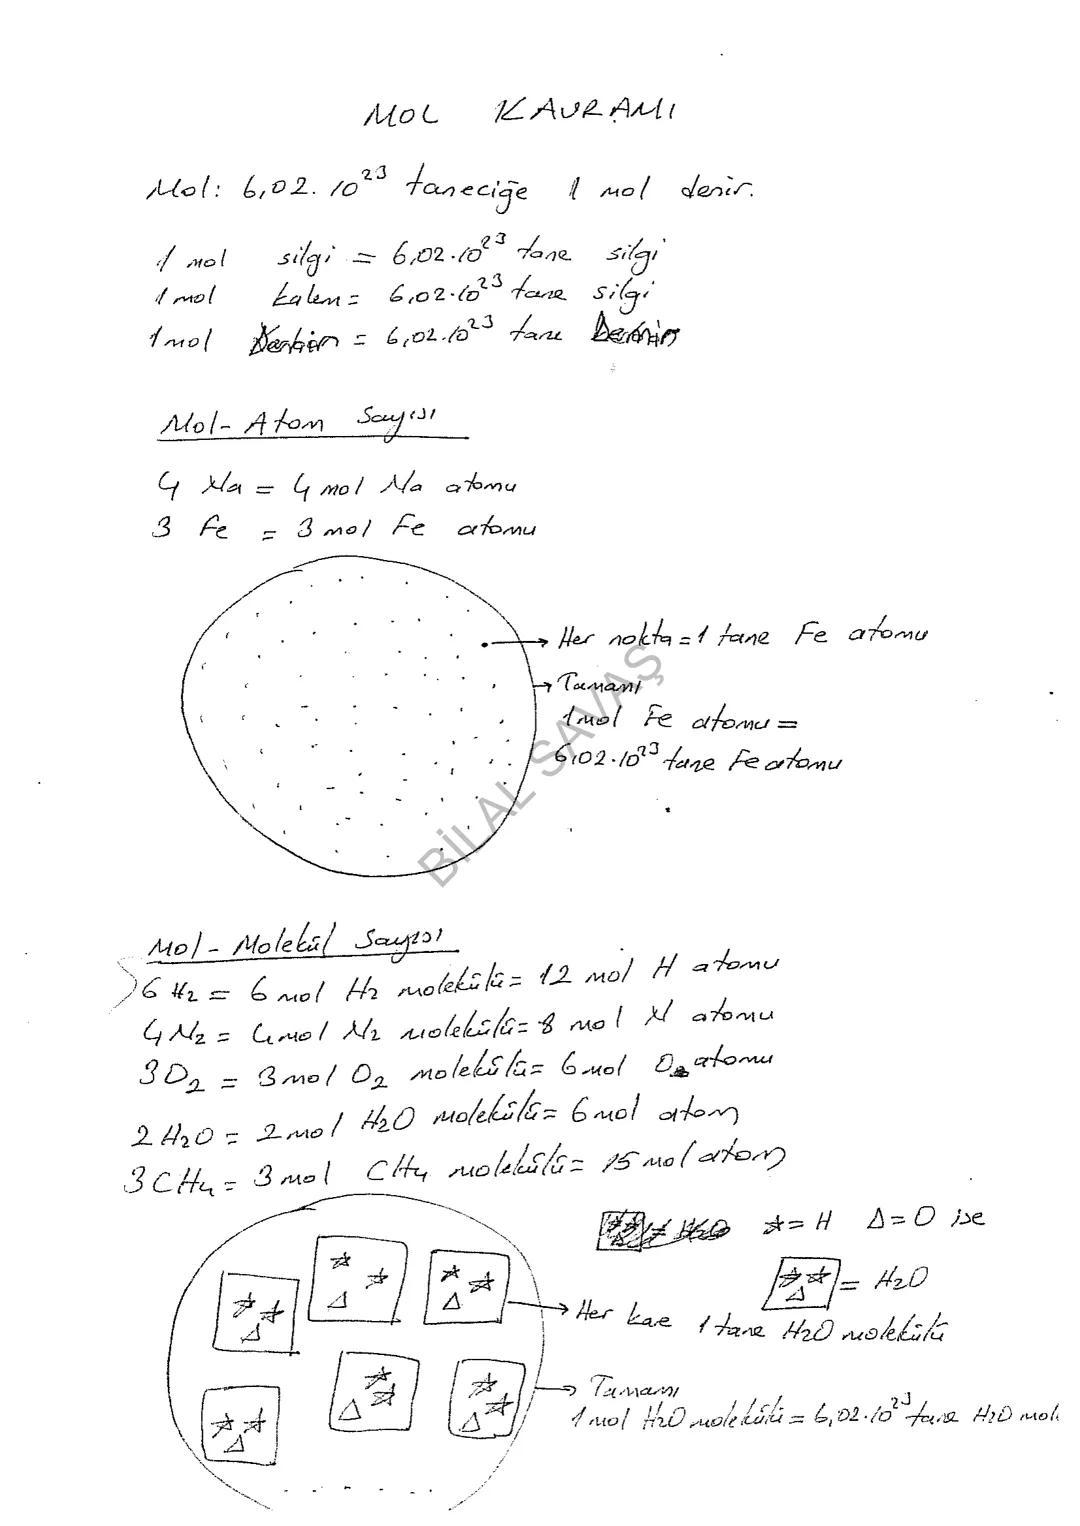 MOL KAVRAMI
Mol: 6,02.10²³ taneciğe 1 mol denir.
1 mol silgi = 6,02.10²³ tane silgi
1 mol kalem = 6,02.10²³ tane silgi
1 mol = 6,02.10²³ tane
Mol-Atom Sayısı
4 Na = 4 mol Na atomu
3 Fe = 3 mol Fe atomu
Her nokta = 1 tane Fe atomu
Tamamı
1 mol Fe atomu =
6,02.10²³ tane Fe atomu
BİLAL SAVAŞ
Mol-Molekül Sayısı
6 H₂ = 6 mol H₂ molekülü = 12 mol H atomu
4 N₂ = 4 mol N₂ molekülü = 8 mol N atomu
3 O₂ = 3 mol O₂ molekülü = 6 mol O atomu
2 H₂O = 2 mol H₂O molekülü = 6 mol atom
3 CH₄ = 3 mol CH₄ molekülü = 15 mol atom
☆ = H Δ = O ise
= H₂O
Her kare 1 tane H₂O molekülü
Tamamı
1 mol H₂O molekülü = 6,02.10²³ tane H₂O mol